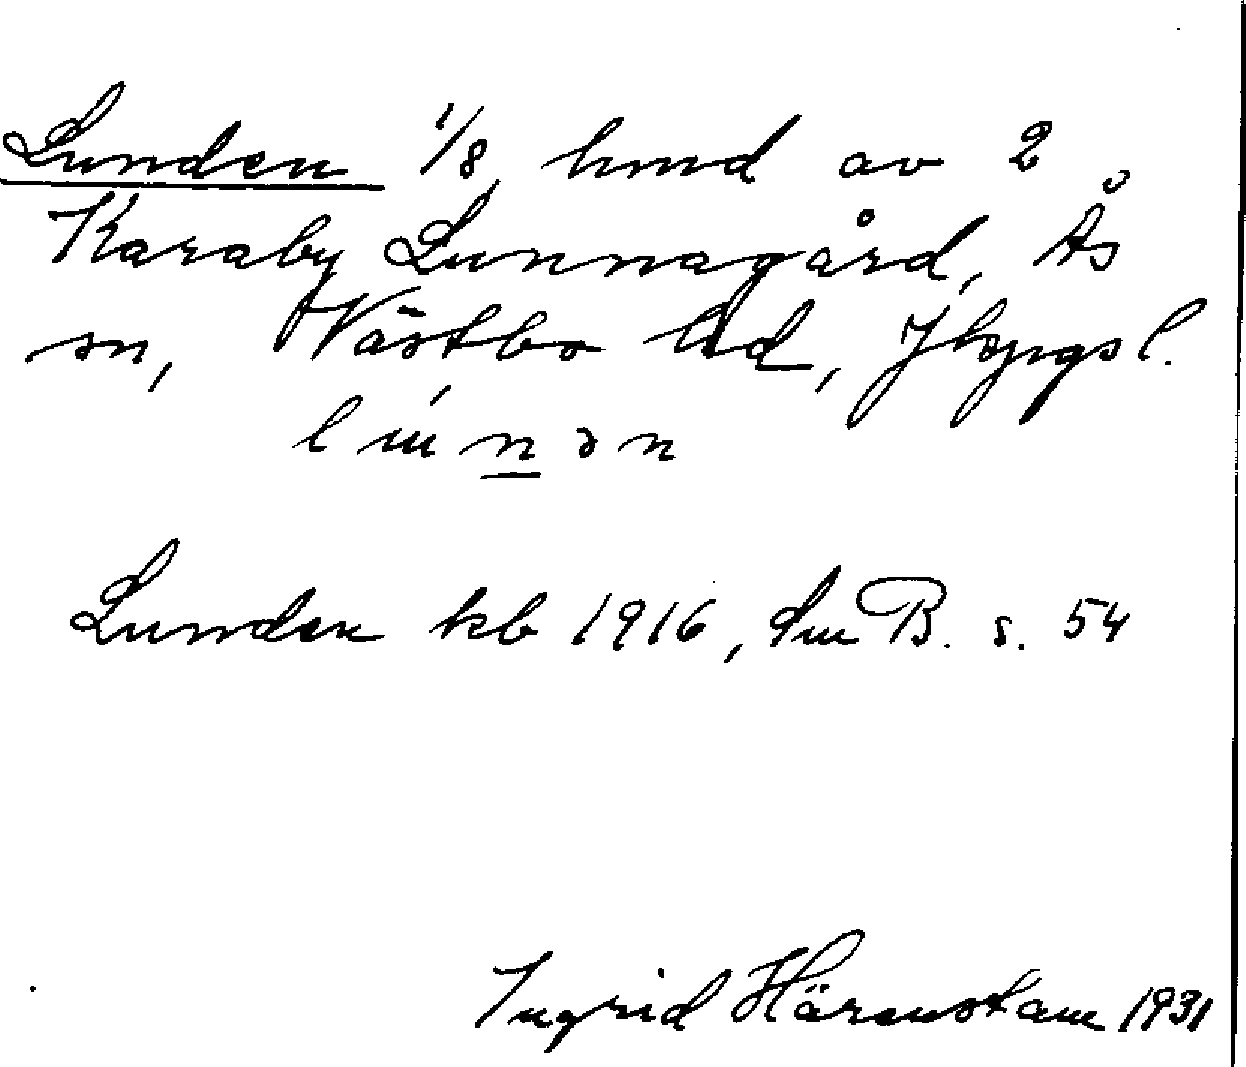 Lunden 1/8 hmd av 2
Karaby Lunnagård, Ås
sn, Västbo hd, Jkpgs l.
lúnən
Lunden kb 1916, dm B. s. 54
Ingrid Härenstam 1931